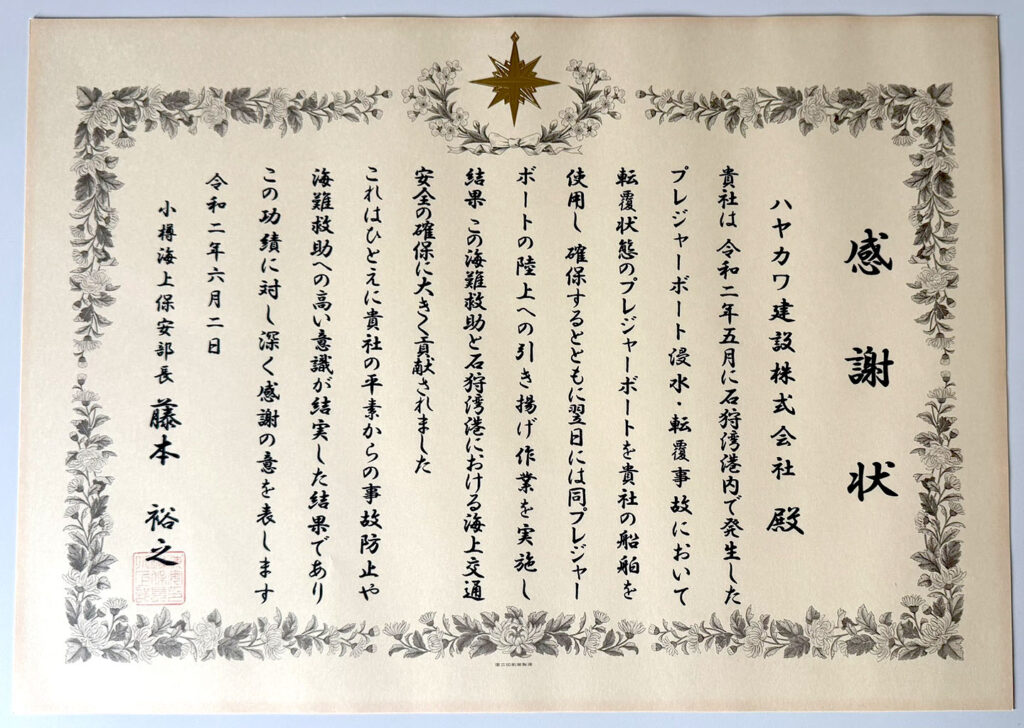 感謝状
ハヤカワ建設株式会社 殿
貴社は 令和二年五月に石狩湾港内で発生した
プレジャーボート浸水・転覆事故において
転覆状態のプレジャーボートを貴社の船舶を
使用し 確保するとともに翌日には同プレジャー
ボートの陸上への引き揚げ作業を実施し
結果 この海難救助と石狩湾港における海上交通
安全の確保に大きく貢献されました
これはひとえに貴社の平素からの事故防止や
海難救助への高い意識が結実した結果であり
この功績に対し深く感謝の意を表します
令和二年六月二日
小樽海上保安部長 藤本 裕之